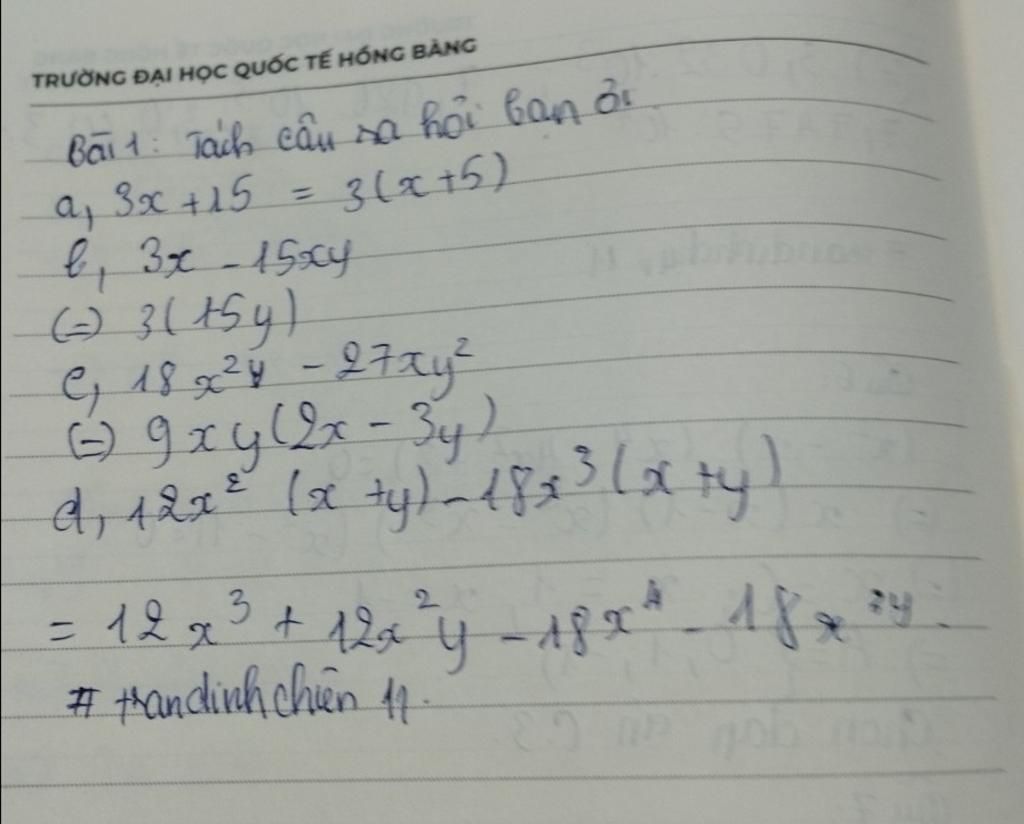 TRƯỜNG ĐẠI HỌC QUỐC TẾ HỒNG BÀNG
Bài 1: Tách câu ra hỏi bạn ơi
a, 3x + 15 = 3(x+5)
b, 3x - 15xy
(=) 3(+5y)
c, 18x²y - 27xy²
(=) 9xy(2x - 3y)
d, 12x² (x+y) - 18x³(x+y)
= 12x³ + 12x²y - 18x⁴ - 18x³y.
# trandinhchiên 11.